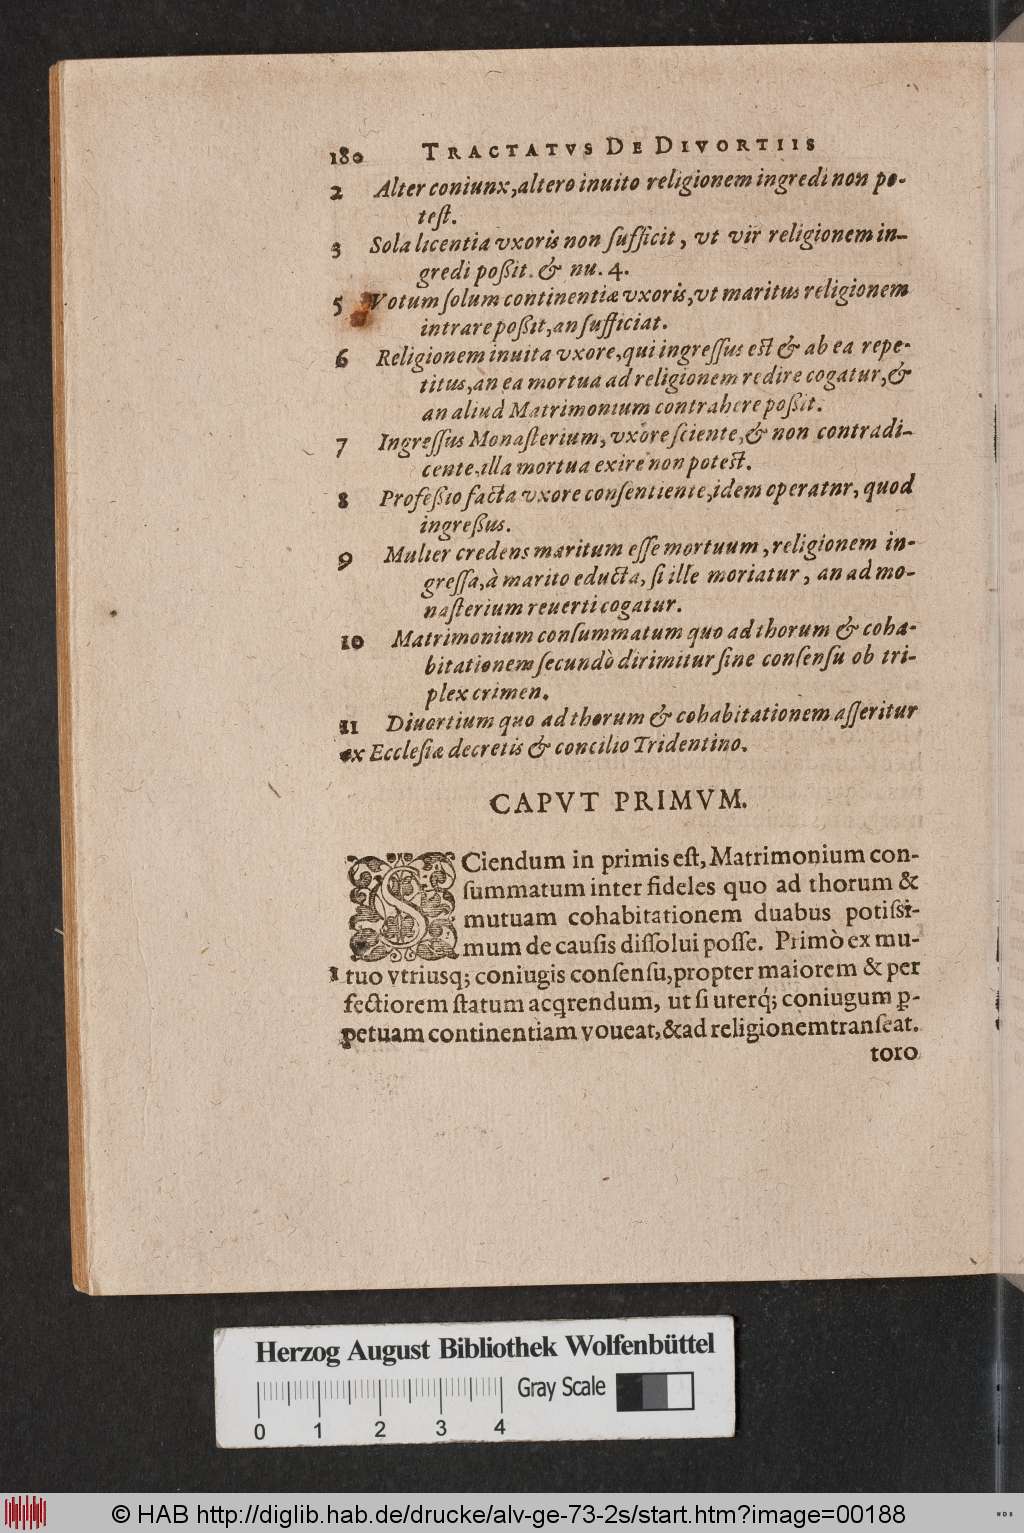 180 TRACTATVS DE DIVORTIIS
2 Alter coniunx, altero inuito religionem ingredi non po-
teſt.
3 Sola licentia vxoris non ſufficit, vt vir religionem in-
gredi poßit. & nu. 4.
5 Votum ſolum continentiæ vxoris, vt maritus religionem
intrare poßit, an ſufficiat.
6 Religionem inuita vxore, qui ingreſſus eſt & ab ea repe-
titus, an ea mortua ad religionem redire cogatur, &
an aliud Matrimonium contrahere poßit.
7 Ingreſſus Monaſterium, vxore ſciente, & non contradi-
cente, illa mortua exire non poteſt.
8 Profeßio facta vxore conſentiente, idem operatnr, quod
ingreßus.
9 Mulier credens maritum eſſe mortuum, religionem in-
greſſa, à marito educta, ſi ille moriatur, an ad mo-
naſterium reuerti cogatur.
10 Matrimonium conſummatum quo ad thorum & coha-
bitationem ſecundò dirimitur ſine conſenſu ob tri-
plex crimen.
11 Diuortium quo ad thorum & cohabitationem aſſeritur
ex Eccleſiæ decretis & concilio Tridentino.
CAPVT PRIMVM.
SCiendum in primis eſt, Matrimonium con-
ſummatum inter fideles quo ad thorum &
mutuam cohabitationem duabus potiſsi-
mum de cauſis diſſolui poſſe. Primò ex mu-
1 tuo vtriusq; coniugis conſenſu, propter maiorem & per
fectiorem ſtatum acqrendum, ut ſi uterq́; coniugum ꝑ-
petuam continentiam voueat, & ad religionem tranſeat.
toro
Herzog August Bibliothek Wolfenbüttel
Gray Scale
0 1 2 3 4
© HAB http://diglib.hab.de/drucke/alv-ge-73-2s/start.htm?image=00188